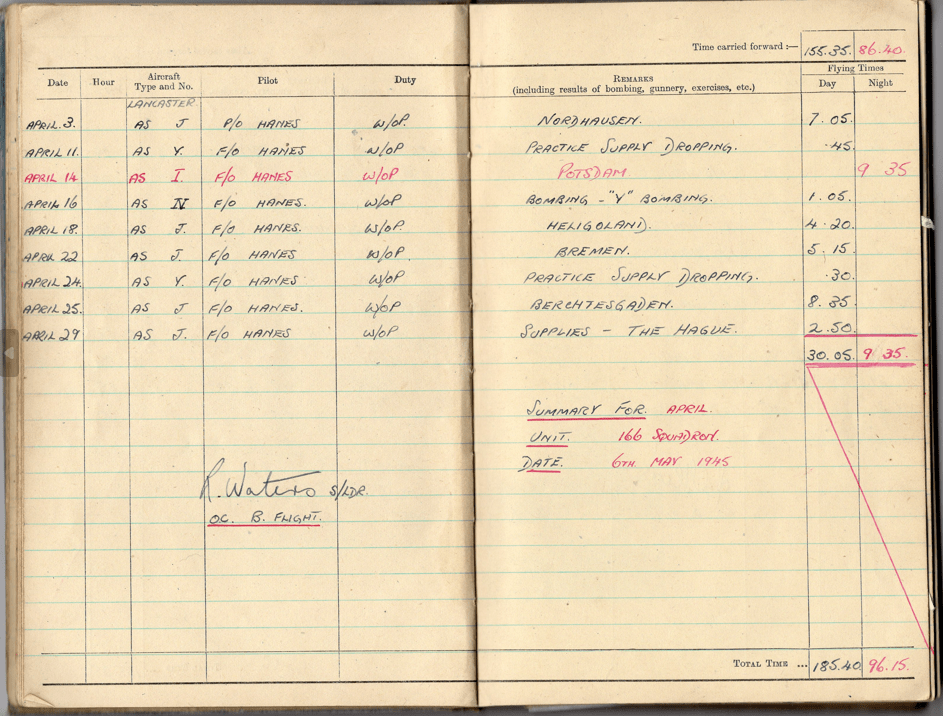 Time carried forward :— 155.35. 86.40.
Date Hour Aircraft Type and No. Pilot Duty REMARKS (including results of bombing, gunnery, exercises, etc.) Flying Times Day Night
LANCASTER
APRIL.3. AS J P/O HANES W/OP. NORDHAUSEN. 7.05.
APRIL 11. AS Y. F/O HANES W/OP PRACTICE SUPPLY DROPPING. .45.
APRIL 14 AS I. F/O HANES W/OP POTSDAM 9 35
APRIL 16 AS N F/O HANES. W/OP BOMBING - "Y" BOMBING. 1.05.
APRIL 18. AS J. F/O HANES. W/OP. HELIGOLAND. 4.20.
APRIL 22 AS J. F/O HANES. W/OP. BREMEN. 5.15
APRIL 24. AS Y. F/O HANES. W/OP PRACTICE SUPPLY DROPPING. .30.
APRIL 25. AS J F/O HANES. W/OP BERCHTESGADEN. 8.35
APRIL 29 AS J. F/O HANES W/OP SUPPLIES - THE HAGUE. 2.50.
30.05. 9 35.
SUMMARY FOR. APRIL.
UNIT. 166 SQUADRON.
DATE. 6TH MAY 1945
R. Waters S/LDR.
OC. B. FLIGHT.
TOTAL TIME ... 185.40 96.15.